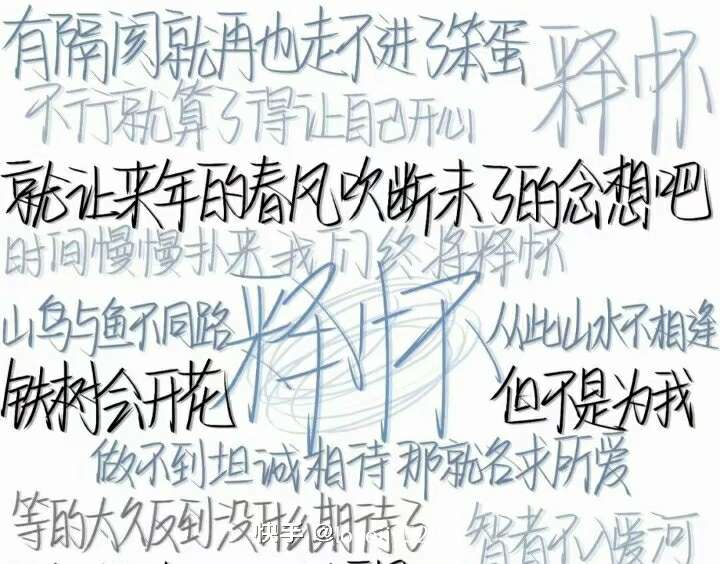 有隔阂就再也走不进了笨蛋
释怀
不行就算了得让自己开心
就让来年的春风吹断未了的念想吧
时间慢慢扑来我们终将释怀
山鸟与鱼不同路
释怀
从此山水不相逢
铁树会开花
但不是为我
做不到坦诚相待那就名求所爱
等的太久反到没什么期待了
智者不入爱河
快手